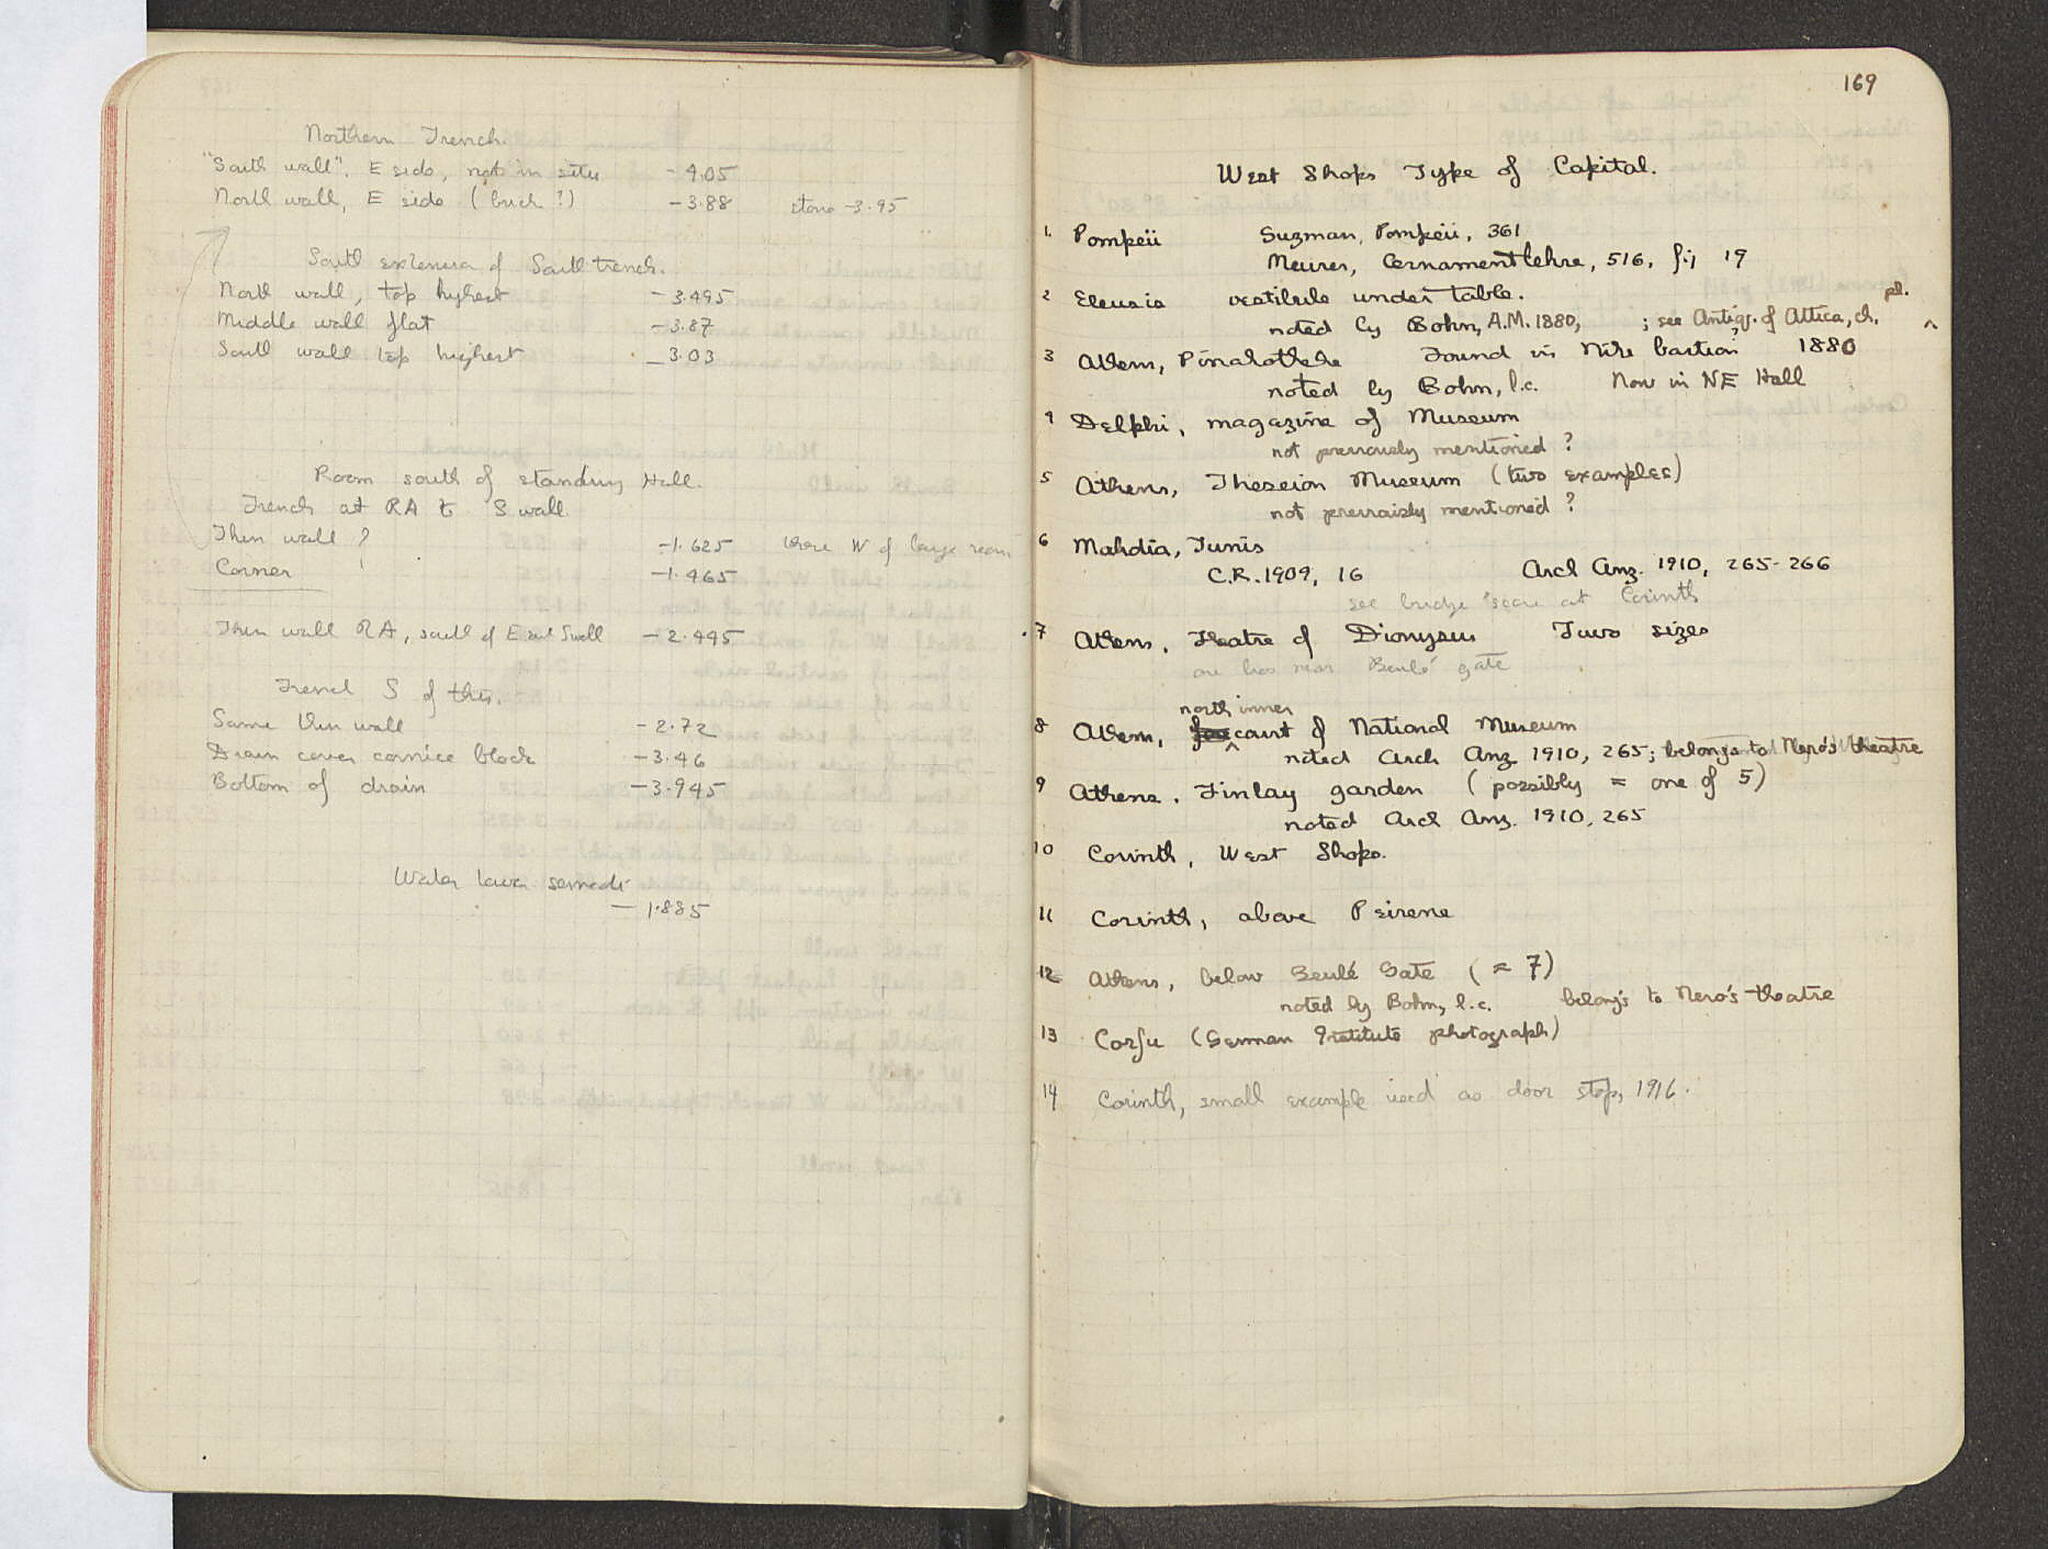 Northern Trench.
"South wall", E side, not in situ - 4.05
North wall, E side (brick?) - 3.88 stone - 3.95
South extension of South trench.
North wall, top highest - 3.495
Middle wall flat - 3.87
South wall top highest - 3.03
Room south of standing Hall.
Trench at RA to S wall
Thin wall? - 1.625 there W of large room
Corner - 1.465
Thin wall RA, south of E end S wall - 2.495
Trench S of this.
Same thin wall - 2.72
Drain cover cornice block - 3.46
Bottom of drain - 3.945
Water
- 1.885
169
West Shops Type of Capital.
1. Pompeii Gusman, Pompeii, 361
Meurer, Oernamentlehre, 516, fig 19
2 Eleusis vestibule under table. pl.
noted by Bohn, A.M. 1880, ; see Antiqq. of Attica, ch. ^
3 Athens, Pinakotheke Found in Nike bastion 1880
noted by Bohn, l.c. Now in NE Hall
4 Delphi, magazine of Museum
not previously mentioned?
5 Athens, Theseion Museum (two examples)
not previously mentioned?
6 Mahdia, Tunis
C.R. 1909, 16 Arch Anz. 1910, 265-266
see bridge at Corinth
7 Athens, Theatre of Dionysus Two sizes
one lies near Beulé gate
north inner
8 Athens, ^ court of National Museum
noted Arch Anz 1910, 265; belongs to Nero's theatre
9 Athens. Finlay garden (possibly = one of 5)
noted Arch Anz. 1910, 265
10 Corinth, West Shops.
11 Corinth, above Peirene
12 Athens, below Beulé Gate (= 7)
noted by Bohn, l.c. belongs to Nero's theatre
13 Corfu (German Institute photograph)
14 Corinth, small example used as door stop, 1916.